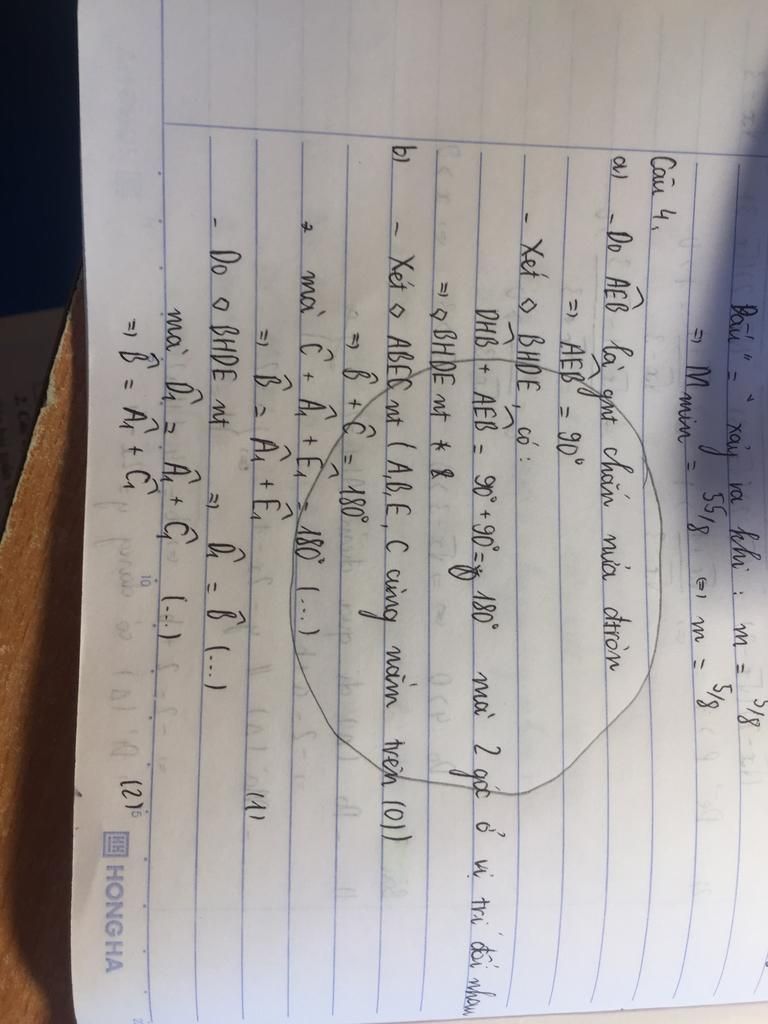 Dấu " = " xảy ra khi : m = 5/8
=> M min = 55/8 <=> m = 5/8
Câu 4.
a) - Do AEB̂ là gnt chắn nửa đtròn
=> AEB̂ = 90°
- Xét ◇ BHDE, có :
DHB̂ + AEB̂ = 90° + 90° = 180° mà 2 góc ở vị trí đối nhau
=> ◇ BHDE nt
b) - Xét ◇ ABEC nt ( A, B, E, C cùng nằm trên (O))
=> B̂ + Ĉ = 180°
mà Ĉ + Â1 + Ê1 = 180° (...)
=> B̂ = Â1 + Ê1 (1)
- Do ◇ BHDE nt => D̂1 = B̂ (...)
mà D̂1 = Â1 + Ĉ1 (...)
=> B̂ = Â1 + Ĉ1 (2)
HONG HA